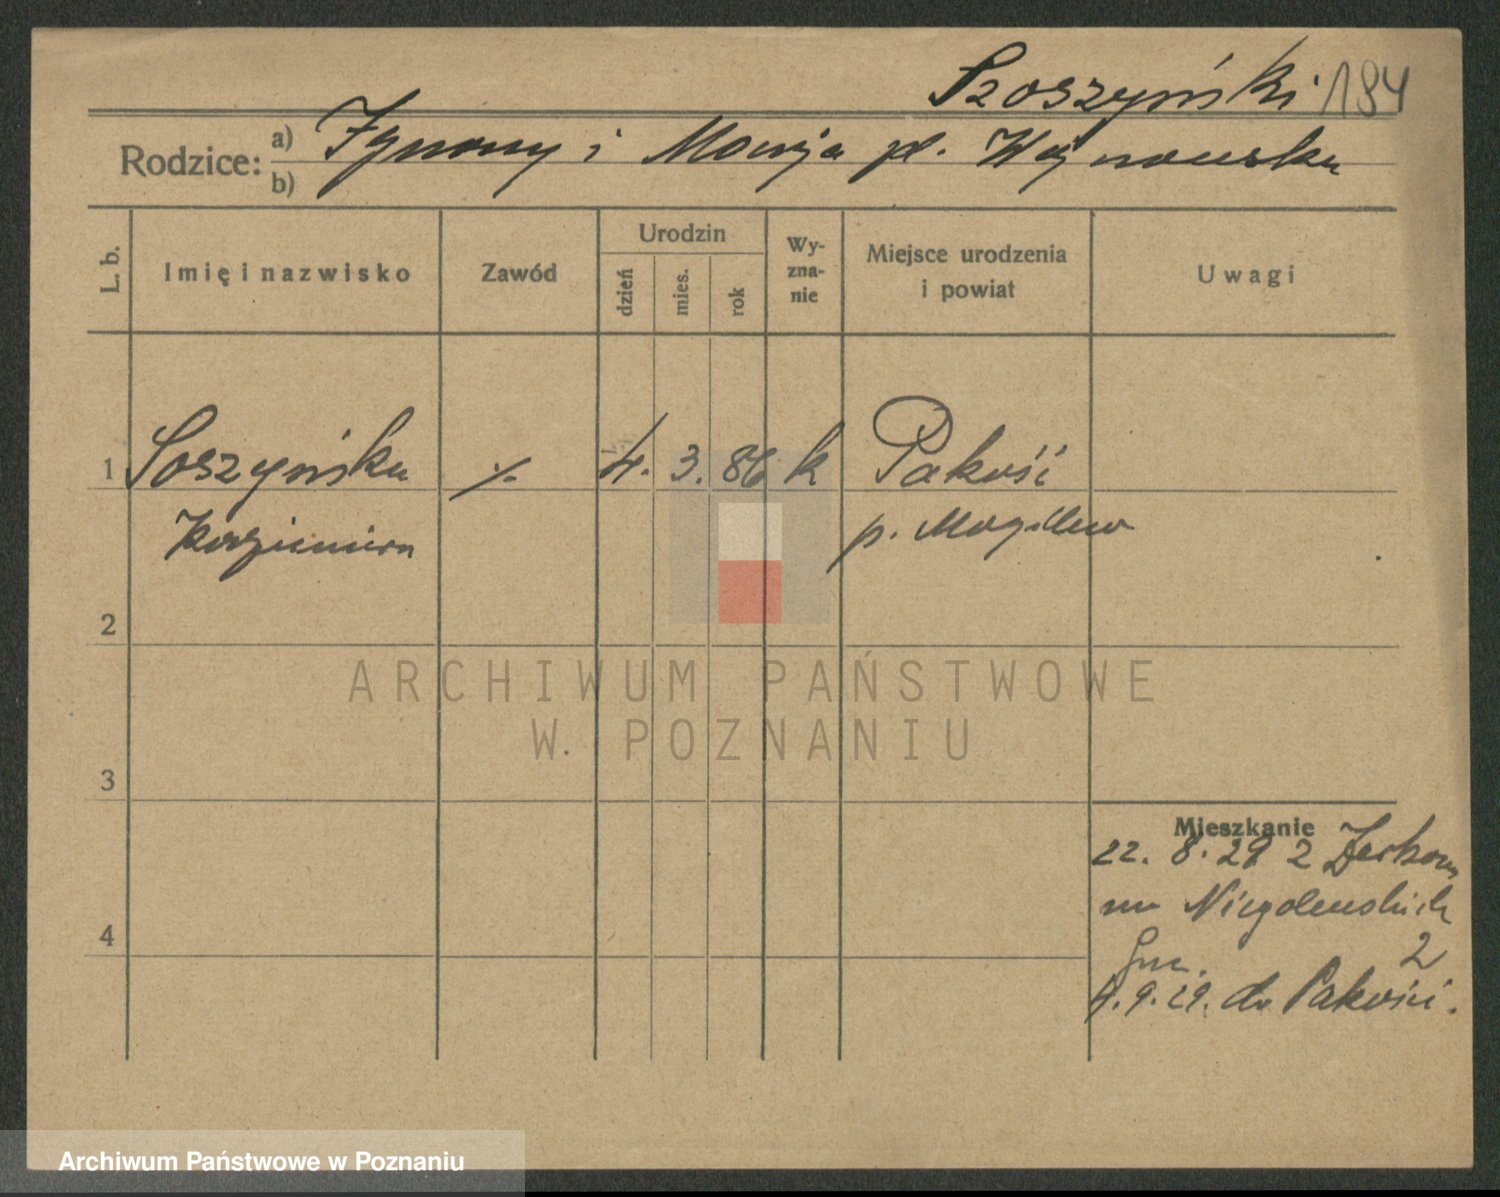 Szoszyński 194
Rodzice: a) Ignacy i Maryja pł. Wojnowska
b)
L. b.
Imię i nazwisko
Zawód
Urodzin
dzień
mies.
rok
Wy-
zna-
nie
Miejsce urodzenia
i powiat
Uwagi
1 Soszyńska ./. 4. 3. 86 k Pakość
Kazimiera p. Mogilno
2
3
4
Mieszkanie
22. 8. 29 z
Niegolewskich
2
4. 9. 29. do Pakości.
ARCHIWUM PAŃSTWOWE
W POZNANIU
Archiwum Państwowe w Poznaniu